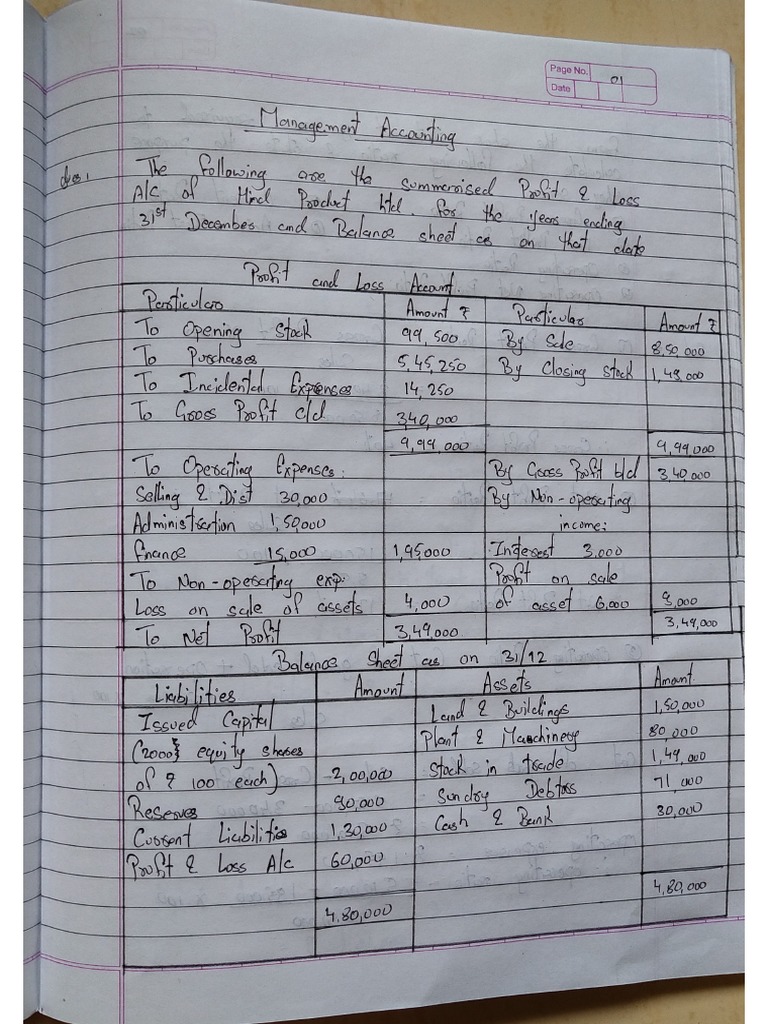 Page No. 01
Date
Management Accounting
Ques 1 The following are the summerised Profit & Loss
A/c of Hind Product Ltd. for the years ending
31st December and Balance sheet as on that date
Profit and Loss Account.
Particulars Amount ₹ Particular Amount ₹
To Opening Stock 99,500 By Sale 8,50,000
To Purchases 5,45,250 By Closing stock 1,49,000
To Incidental Expenses 14,250
To Gross Profit c/d 3,40,000
9,99,000 9,99,000
To Operating Expenses: By Gross Profit b/d 3,40,000
Selling & Dist 30,000 By Non-operating
Administration 1,50,000 income:
finance 15,000 1,95,000 Interest 3,000
To Non-operating exp: Profit on sale
Loss on sale of assets 4,000 of asset 6,000 9,000
To Net Profit 3,49,000 3,49,000
Balance Sheet as on 31/12
Liabilities Amount Assets Amount
Issued Capital Land & Buildings 1,50,000
(2000 equity shares Plant & Machinery 80,000
of ₹ 100 each) 2,00,000 Stock in trade 1,49,000
Reserves 90,000 Sundry Debtors 71,000
Current Liabilities 1,30,000 Cash & Bank 30,000
Profit & Loss A/c 60,000
4,80,000 4,80,000